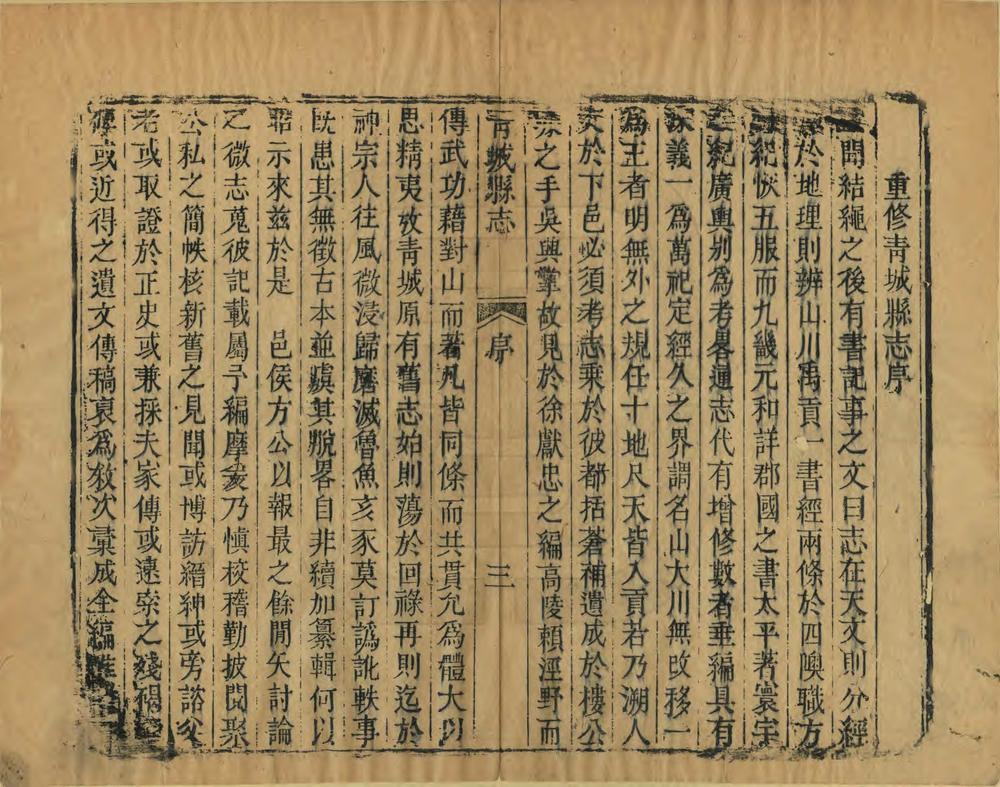 重修靑城縣志序
聞結繩之後有書記事之文曰志在天文則分經
於地理則辨山川禹貢一書經兩條於四隩職方
紀恢五服而九畿元和詳郡國之書太平著寰宇
之紀廣輿别爲考畧通志代有增修數者垂編具有
深義一爲萬祀定經久之界謂名山大川無改移一
爲王者明無外之規任十地尺天皆入貢若乃溯人
文於下邑必須考志乘於彼都括蒼補遺成於樓公
之手吳興掌故見於徐獻忠之編高陵賴涇野而
靑城縣志
序
三
傳武功藉對山而著凡皆同條而共貫允爲體大以
思精夷攷靑城原有舊志始則蕩於回祿再則迄於
神宗人往風微浸歸磨滅魯魚亥豕莫訂譌訛軼事
旣患其無徵古本並虞其脫畧自非續加纂輯何以
昭示來兹於是 邑侯方公以報最之餘閒矢討論
之微志蒐彼記載屬予編摩爰乃慎校稽勤披閱聚
公私之簡帙核新舊之見聞或博訪縉紳或旁諮父
老或取證於正史或兼採夫家傳或遠索之殘碣
或近得之遺文傳稿裒爲敘次彚成全編